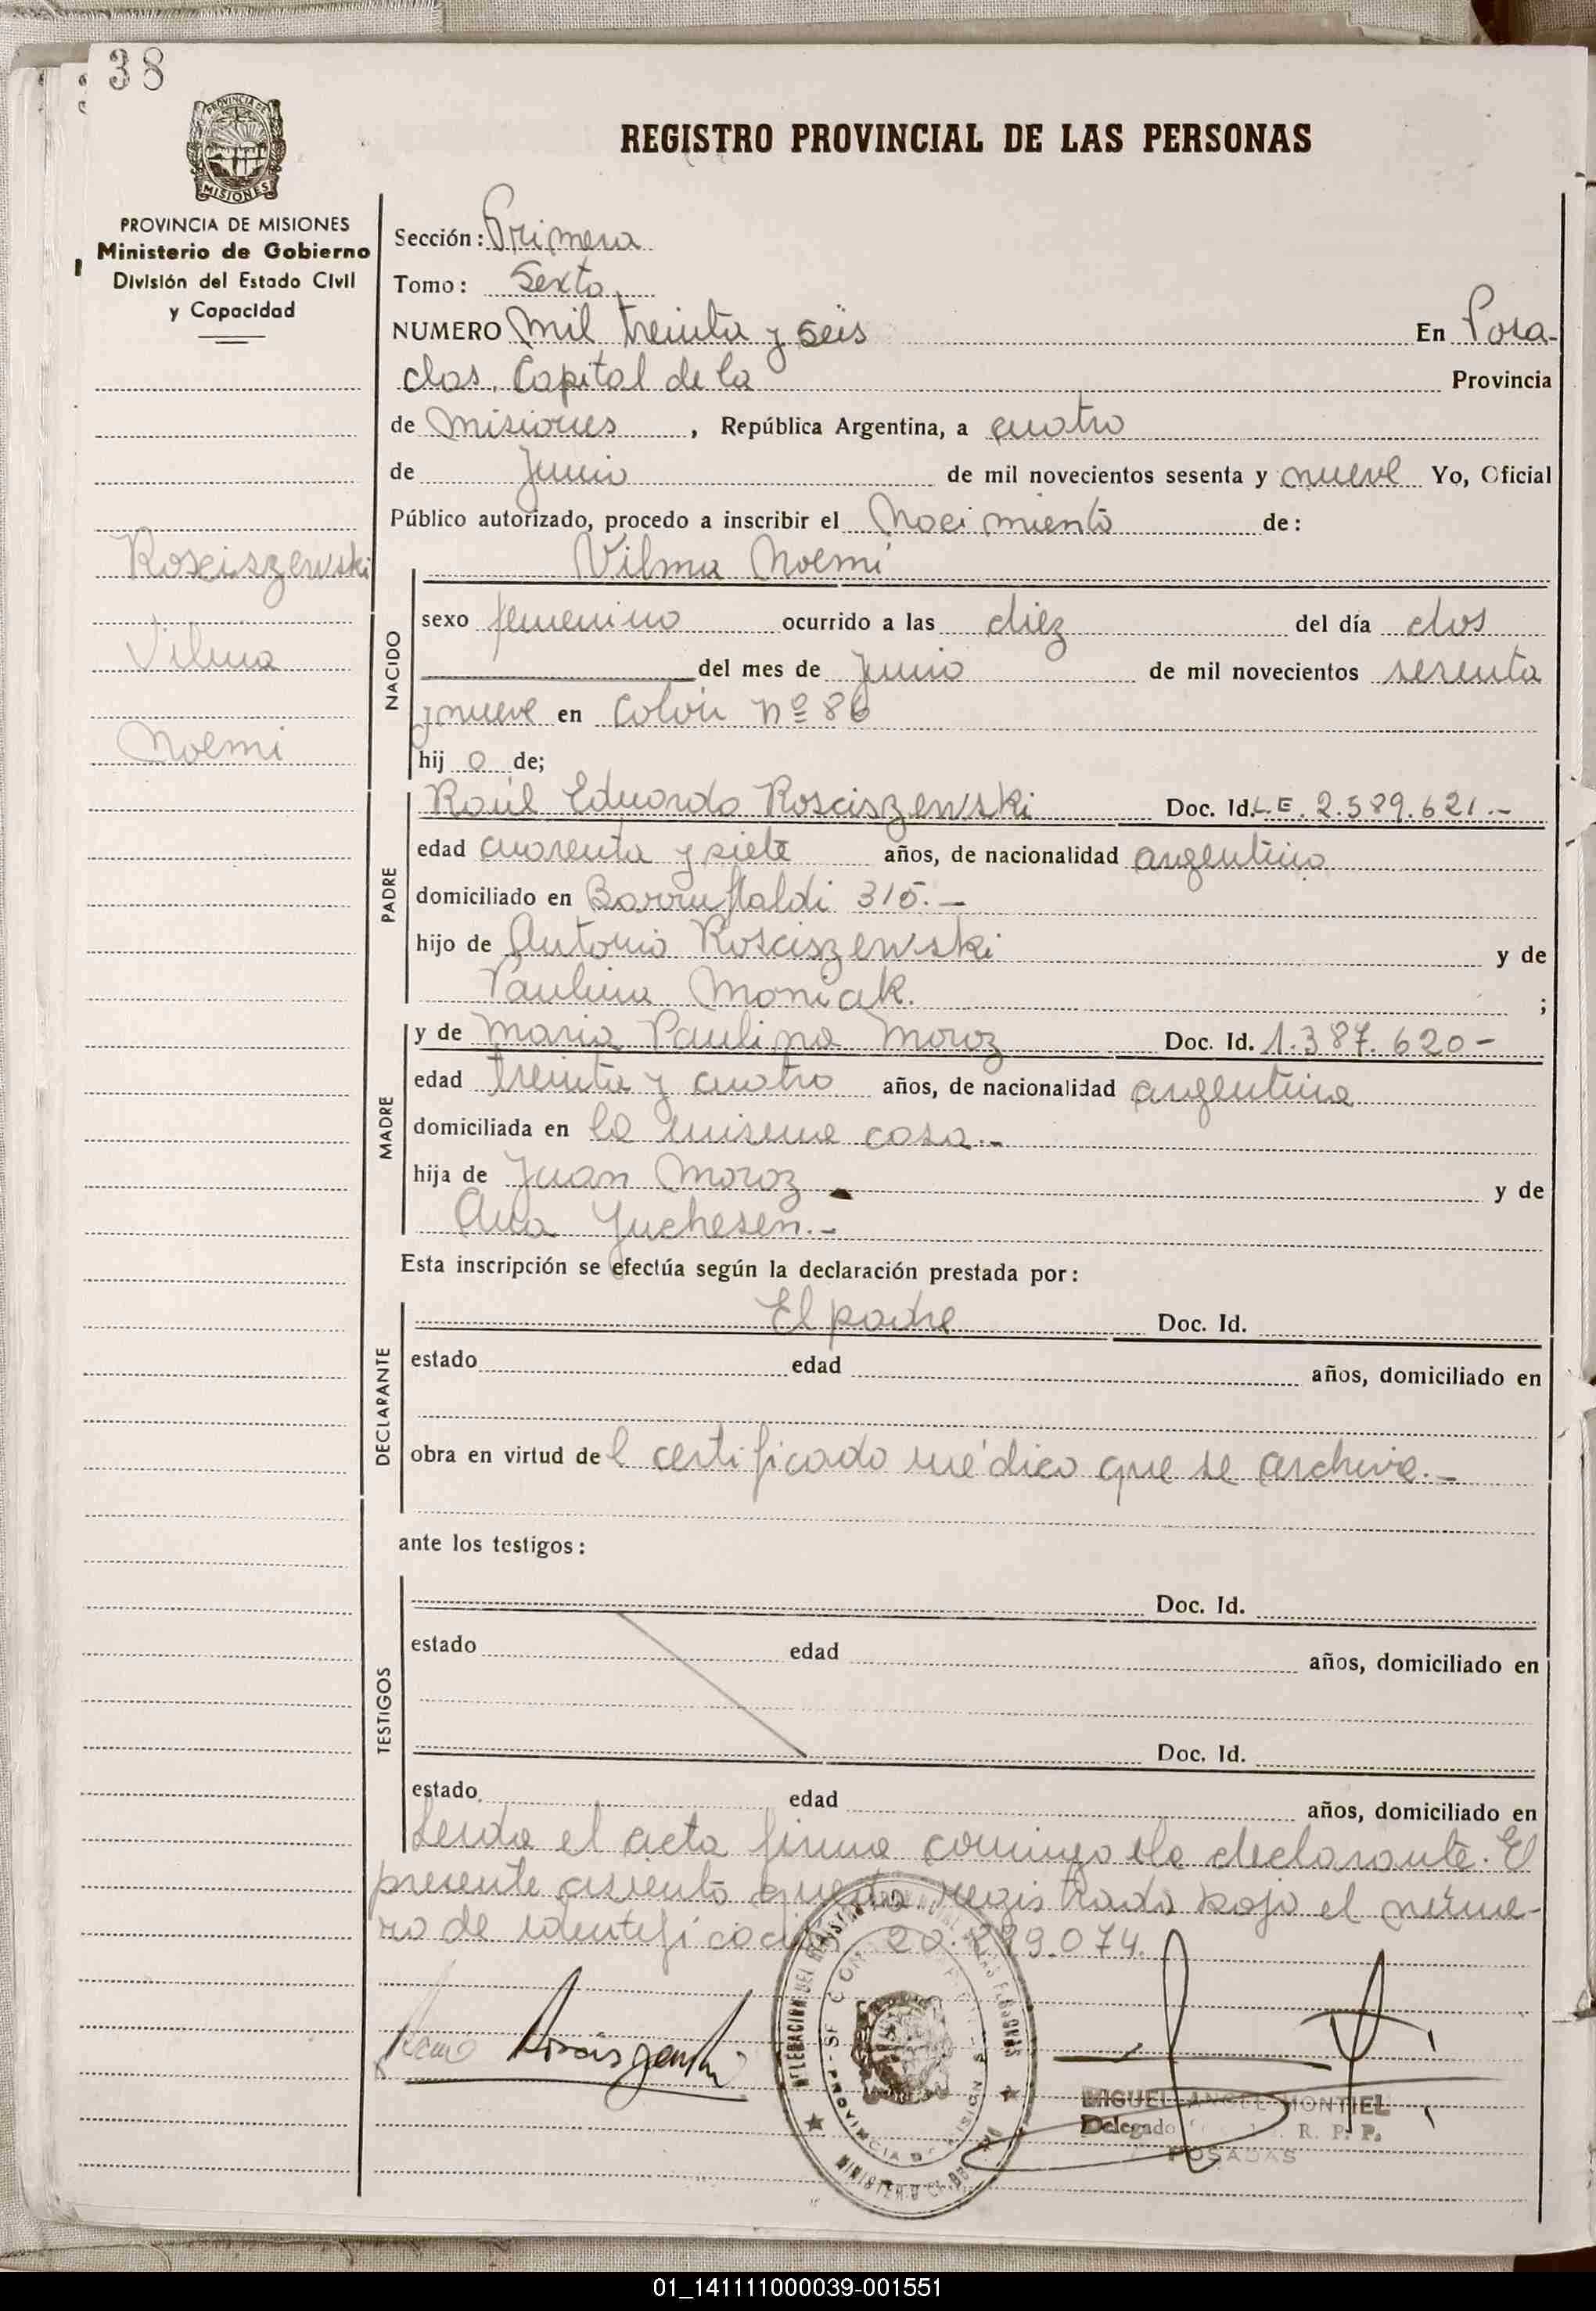 38
PROVINCIA DE
MISIONES
REGISTRO PROVINCIAL DE LAS PERSONAS
PROVINCIA DE MISIONES
Ministerio de Gobierno
División del Estado Civil
y Capacidad
Sección: Primera
Tomo: Sexto
NUMERO mil treinta y seis En Posa-
das, Capital de la Provincia
de misiones, República Argentina, a cuatro
de Junio de mil novecientos sesenta y nueve Yo, Oficial
Público autorizado, procedo a inscribir el Nacimiento de:
Rosciszewski
Vilma Noemi
Vilma
Noemi
NACIDO
sexo femenino ocurrido a las diez del día dos
del mes de Junio de mil novecientos sesenta
y nueve en Colón nº 86
hij o de;
PADRE
Raúl Eduardo Rosciszewski Doc. Id. L.E. 2.589.621.-
edad cuarenta y siete años, de nacionalidad argentino
domiciliado en 315.-
hijo de Antonio Rosciszewski y de
Paulina Moniak. ;
MADRE
y de Maria Paulina Moroz Doc. Id. 1.387.620-
edad treinta y cuatro años, de nacionalidad argentina
domiciliada en la misma casa.-
hija de Juan Moroz y de
Ana Juchesen.-
Esta inscripción se efectúa según la declaración prestada por:
DECLARANTE
El padre Doc. Id.
estado edad años, domiciliado en
obra en virtud del certificado médico que se archiva.-
ante los testigos:
TESTIGOS
Doc. Id.
estado edad años, domiciliado en
Doc. Id.
estado edad años, domiciliado en
Leida el acta firma conmigo el declarante. El
presente asiento queda registrado bajo el núme-
ro de identificación 20.299.074.
Rosciszewski
MIGUEL ANGEL MONTIEL
Delegado R. P. P.
POSADAS
01_141111000039-001551